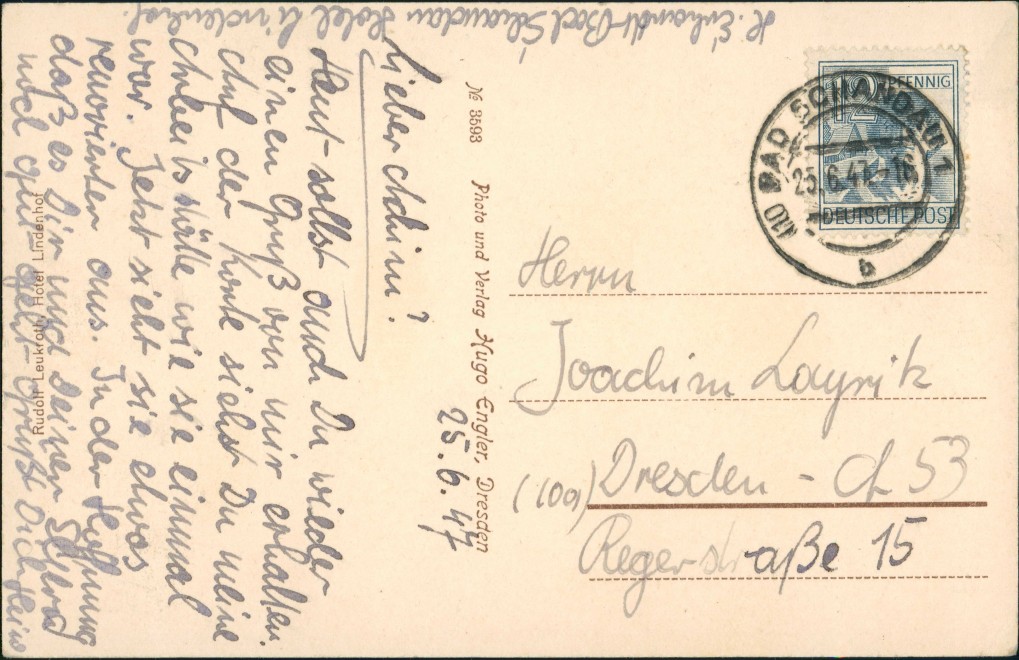 H. Erhardt-Bad Schandau Hotel Lindenhof
Lieber Achim!
Heut sollst auch Du wieder
einen Gruß von mir erhalten.
Auf der Karte siehst Du meine
wie sie einmal
war. Jetzt sieht sie etwas
renovierter aus. In der Hoffnung
daß es Dir und Deinen Eltern
noch gut geht grüßt Dich Heinz
25.6.47
Rudolf Leukroth, Hotel Lindenhof
№ 3593 Photo und Verlag Hugo Engler, Dresden
12 PFENNIG
DEUTSCHE POST
(10) BAD SCHANDAU 1
25.6.47.-16
b
Herrn
Joachim Layritz
(10a) Dresden - A 53
Regerstraße 15